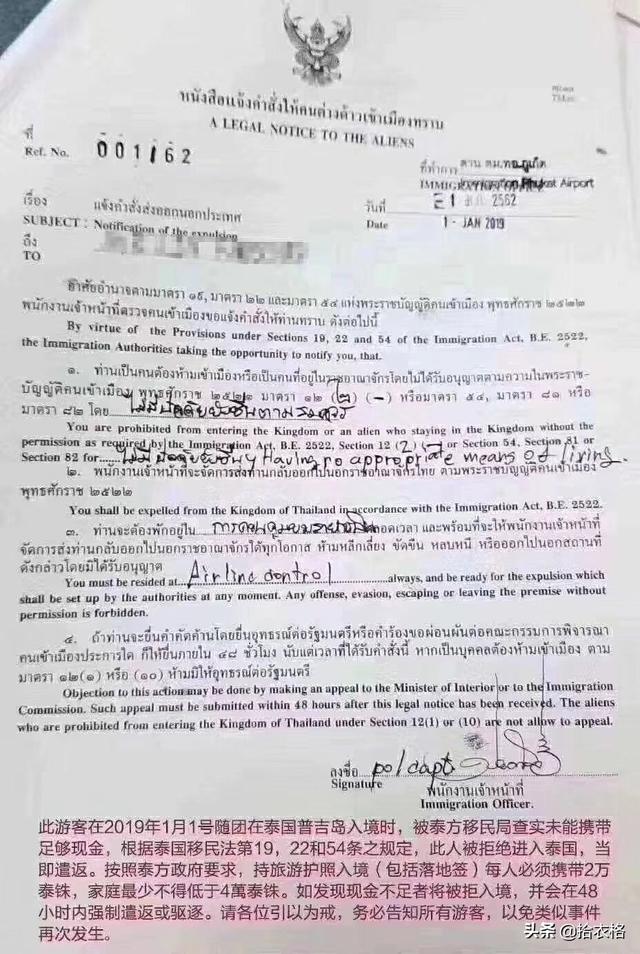 หนังสือแจ้งคำสั่งให้คนต่างด้าวเข้าเมืองทราบ
A LEGAL NOTICE TO THE ALIENS
ที่
Ref. No. 001162
ที่ทำการ ด่าน ตม.ทอ.ภูเก็ต
Phuket Airport
เรื่อง แจ้งคำสั่งส่งออกนอกประเทศ
วันที่ 1 2562
SUBJECT : Notification of the expulsion
Date 1 - JAN 2019
ถึง
TO
อาศัยอำนาจตามมาตรา ๑๙, มาตรา ๒๒ และมาตรา ๕๔ แห่งพระราชบัญญัติคนเข้าเมือง พุทธศักราช ๒๕๒๒
พนักงานเจ้าหน้าที่ตรวจคนเข้าเมืองขอแจ้งคำสั่งให้ท่านทราบ ดังต่อไปนี้
By virtue of the Provisions under Sections 19, 22 and 54 of the Immigration Act, B.E. 2522,
the Immigration Authorities taking the opportunity to notify you, that.
๑. ท่านเป็นคนต้องห้ามเข้าเมืองหรือเป็นคนที่อยู่ในราชอาณาจักรโดยไม่ได้รับอนุญาตตามความในพระราช-
บัญญัติคนเข้าเมือง พุทธศักราช ๒๕๒๒ มาตรา ๑๒ (๒) (-) หรือมาตรา ๕๔, มาตรา ๘๑ หรือ
มาตรา ๘๒ โดย ไม่มีปัจจัยยังชีพตามสมควร
You are prohibited from entering the Kingdom or an alien who staying in the Kingdom without the
permission as required by the Immigration Act, B.E. 2522, Section 12 (2) (-) or Section 54, Section 81 or
Section 82 for ไม่มีปัจจัยยังชีพ Having no appropriate means of living.
๒. พนักงานเจ้าหน้าที่จะจัดการส่งท่านกลับออกไปนอกราชอาณาจักรไทย ตามพระราชบัญญัติคนเข้าเมือง
พุทธศักราช ๒๕๒๒
You shall be expelled from the Kingdom of Thailand in accordance with the Immigration Act, B.E. 2522.
๓. ท่านจะต้องพักอยู่ใน ตลอดเวลา และพร้อมที่จะให้พนักงานเจ้าหน้าที่
จัดการส่งท่านกลับออกไปนอกราชอาณาจักรได้ทุกโอกาส ห้ามหลีกเลี่ยง ขัดขืน หลบหนี หรือออกไปนอกสถานที่
ดังกล่าวโดยมิได้รับอนุญาต
You must be resided at Airline control always, and be ready for the expulsion which
shall be set up by the authorities at any moment. Any offense, evasion, escaping or leaving the premise without
permission is forbidden.
๔. ถ้าท่านจะยื่นคำคัดค้านโดยยื่นอุทธรณ์ต่อรัฐมนตรีหรือคำร้องขอผ่อนผันต่อคณะกรรมการพิจารณา
คนเข้าเมืองประการใด ก็ให้ยื่นภายใน ๔๘ ชั่วโมง นับแต่เวลาที่ได้รับคำสั่งนี้ หากเป็นบุคคลต้องห้ามเข้าเมือง ตาม
มาตรา ๑๒(๑) หรือ (๑๐) ห้ามมิให้อุทธรณ์ต่อรัฐมนตรี
Objection to this action may be done by making an appeal to the Minister of Interior or to the Immigration
Commission. Such appeal must be submitted within 48 hours after this legal notice has been received. The aliens
who are prohibited from entering the Kingdom of Thailand under Section 12(1) or (10) are not allow to appeal.
ลงชื่อ pol capt
Signature พนักงานเจ้าหน้าที่
Immigration Officer.
此游客在2019年1月1号随团在泰国普吉岛入境时，被泰方移民局查实未能携带
足够现金，根据泰国移民法第19，22和54条之规定，此人被拒绝进入泰国，当
即遣返。按照泰方政府要求，持旅游护照入境（包括落地签）每人必须携带2万
泰铢，家庭最少不得低于4萬泰铢。如发现现金不足者将被拒入境，并会在48
小时内强制遣返或驱逐。请各位引以为戒，务必告知所有游客，以免类似事件
再次发生。
头条 @拾衣格